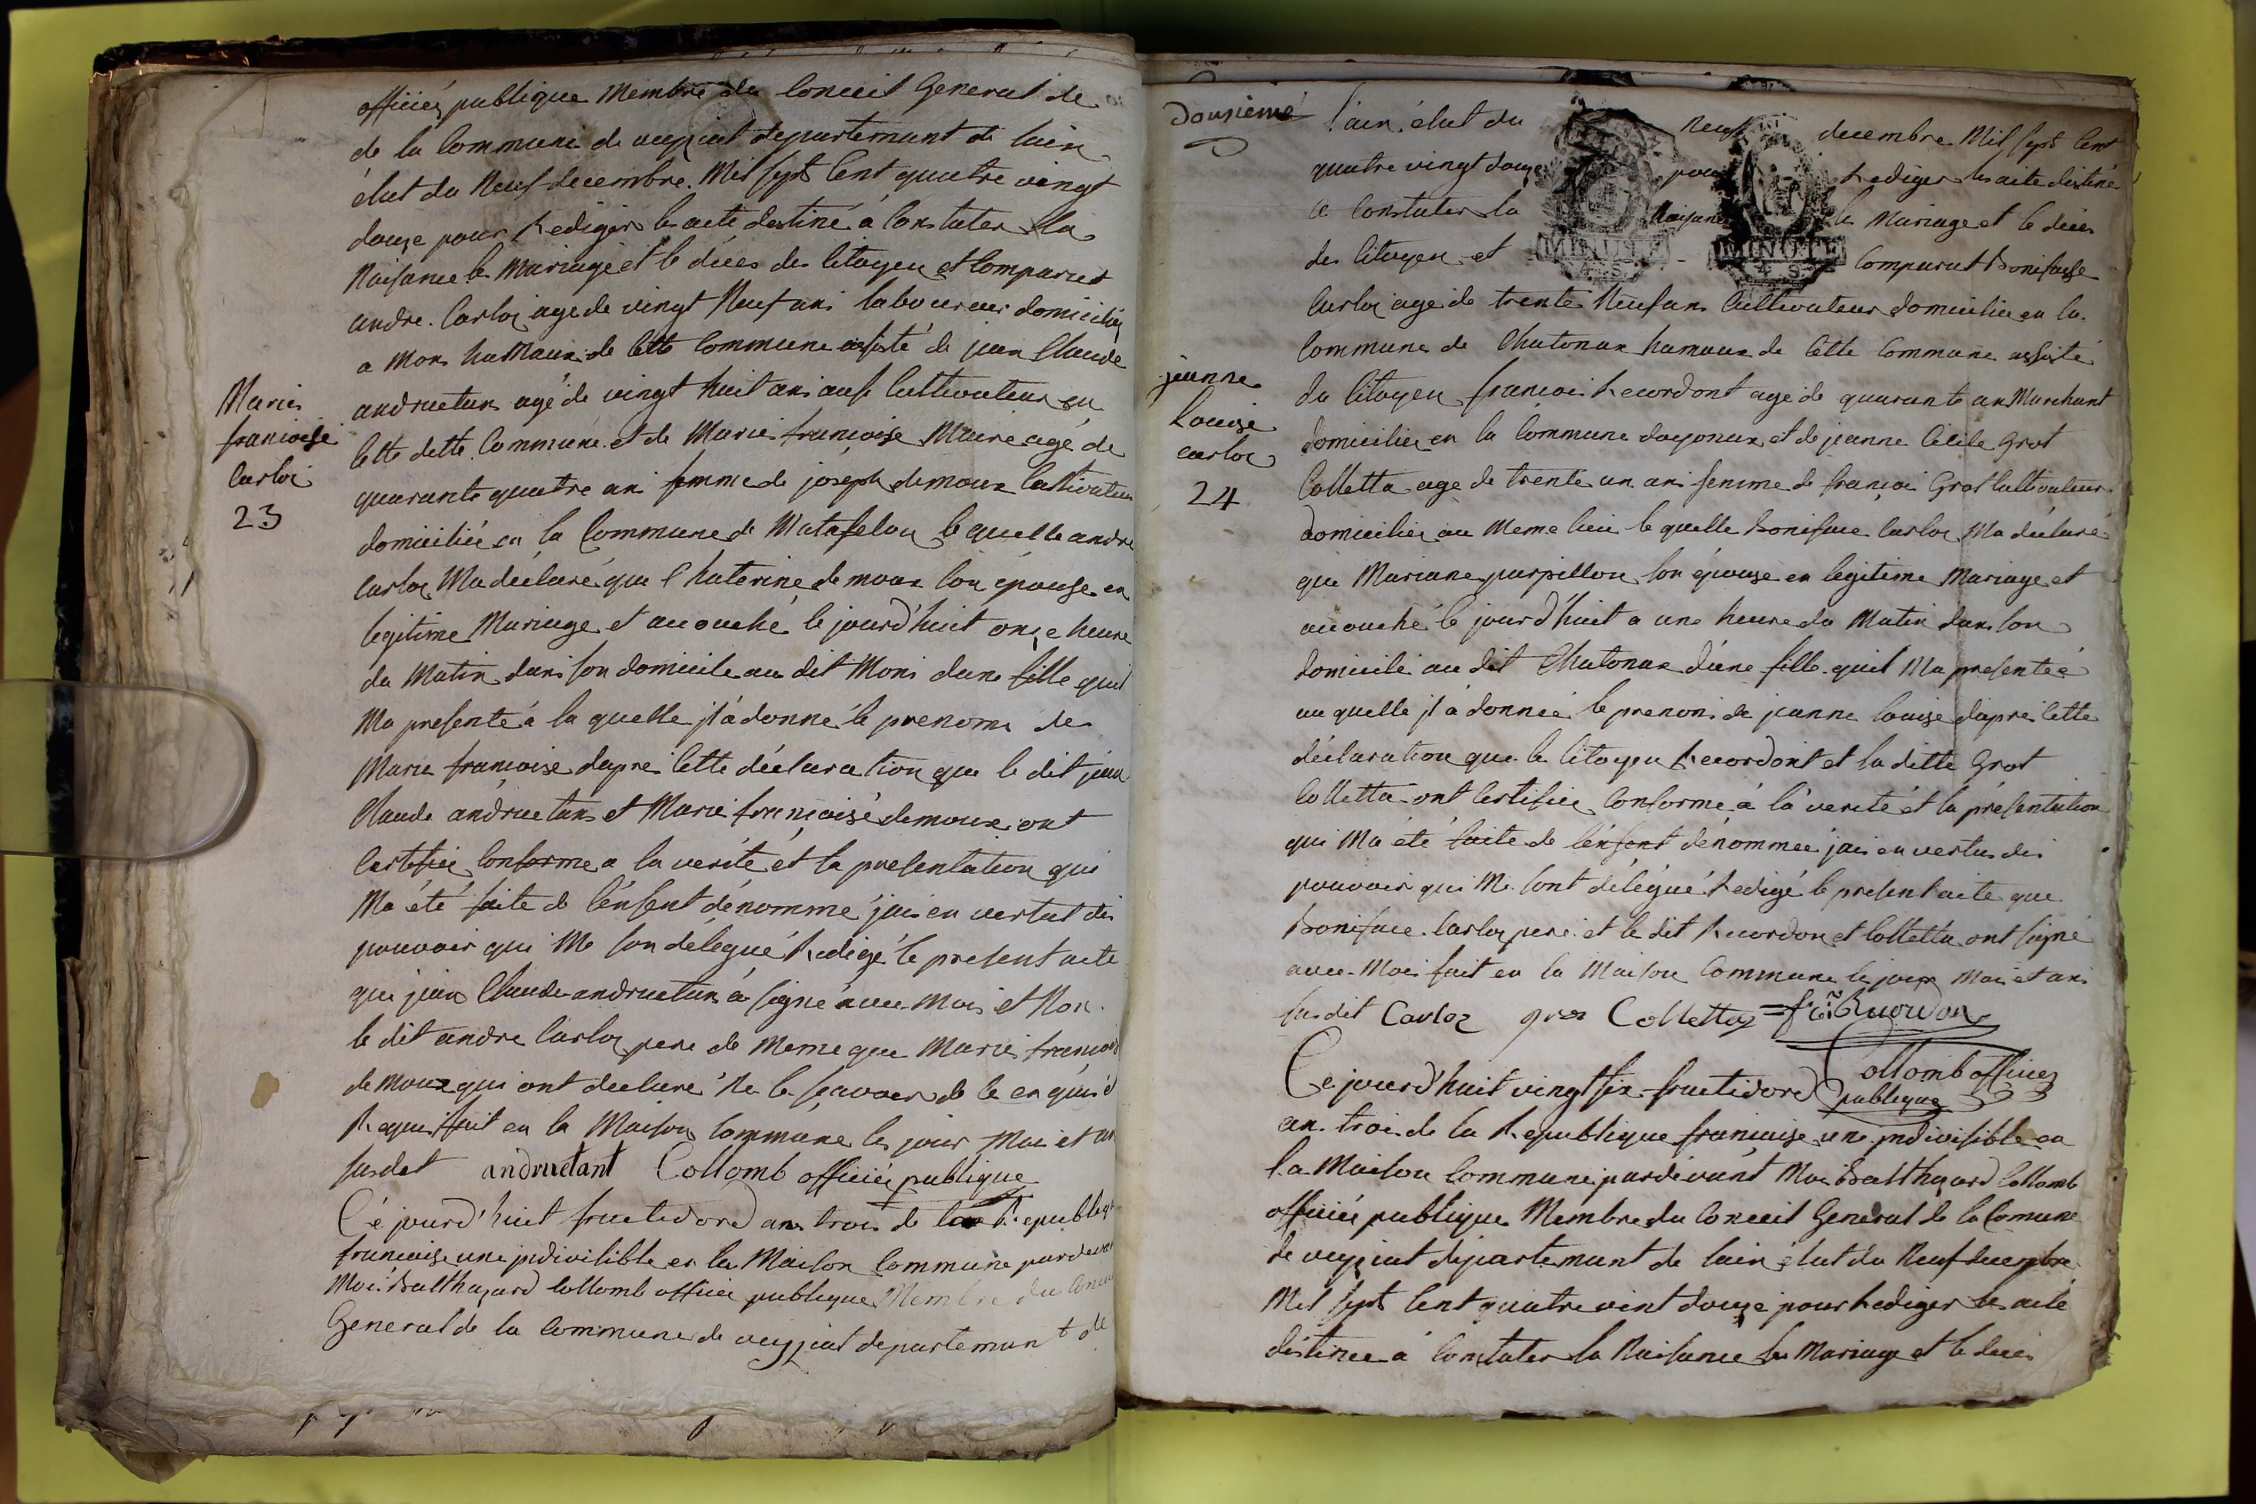 officiér publique Membre du Conceit General de
de la Commune de veyziat departemant de lain
élut du Neuf decembre Mil sept Cent quatre vingt
douze pour Rediger les acte destiné á Constater la
Naisance le Mariage et le déces des Citoyen et Comparut
andre Carloz agé de vingt Neuf ans laboureur domicilié
a Mons hamaux de Cette Commune assisté de jean Claude
andructan agé de vingt huit ans aussi Cultivateur en
Cette ditte Commune et de Marie françoise Maire agé de
quarante quatre ans femme de joseph demoux Cultivateur
domiciliée en la Commune de Matafelon le quelle andre
Carloz Ma déclaré que Chaterine demoux son épouse en
legitime Mariage et acouché le jourd'huit onze heure
du Matin dans son domicile au dit Mons dune fille quil
Ma presenté á la quelle jl á donné le prenoms de
Marie francoise dapres Cette déclaration que le dit jean
Claude andructans et Marie françoise demoux ont
Certifiér Conforme a la verité et la presentation qui
Ma été faite de lénfent dénommé jais en vertut des
pouvoir qui Me son délegué Redigé le present acte
que jean Claude andructan á signé avec Mois et Non
le dit andre Carloz pere de Meme que Marie francoise
demoux qui ont declaré Ne le scavoir de le en quis é
Requis fait en la Maison Commune les jour Mois et an
susdit andructant Collomb officiér publique
Cé jourd'huit fructidord ans trois de la Republique
francaise une jndivisible en la Maison Commune pardevant
Moi Balthazard Collomb officier publique Membre du Conceit
General de la Commune de veyziat departemant de
Marie
francoise
Carloz
23
Douzieme
lain élut du Neuf decembre Mil sept Cent
quatre vingt douze pour Rediger les acte destiné
a Constater la Naisance le Mariage et le déces
des Citoyen et Comparut Boniface
Carloz agé de trente Neuf ans Cultivateur domicilié en la
Commune de Chatonax hamaux de Cette Commune assisté
du Citoyen françois Recordont agé de quarante an Marchant
domiciliér en la Commune doyonax et de jeanne Cécile Grot
Colletta age de trente un ans femme de françoi Grot Cultivateur
domiciliér au Meme lieu le quelle Boniface Carloz Ma déclaré
que Mariane parpillon son épouse en legitime Mariage et
acouché le jourd'huit a une heure du Matin dans son
domicile au dit Chatonax d'une fille quil Ma presentée
au quelle jl á donnée le prenoms de jeanne louise dapres Cette
déclaration que le Citoyen Recordont et la ditte Grot
Colletta ont Certifiér Conforme á la verité et la presentation
qui Ma été faite de lénfent dénommée jais en vertus des
pouvoir qui Me sont délégué Redigé le present acte que
Boniface Carloz pere et le dit Recordon et Colletta ont signé
avec Mois fait en la Maison Commune les jour Mois et ans
susdit Carloz gros Collettaz fcois Recordon
Collomb officier
publique
Ce jourd'huit vingt six fructidord
an trois de la Republique francaise une jndivisible en
la Maison Commune pardevant Moi Balthazard Collomb
officiér publique Membre du Conceit General de la Comune
de veyziat départemant de lain élut du Neuf decembre
Mil sept Cent quatre vint douze pour Rediger les acte
destinée á Constater la Naisance le Mariage et le déces
jeanne
Louise
carloz
24
MINUTE
4 S
MINUTE
4 S